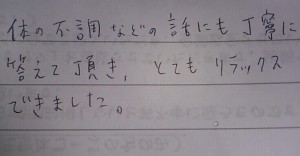 体の不調などの話にも丁寧に
答えて頂き、とてもリラックス
できました。